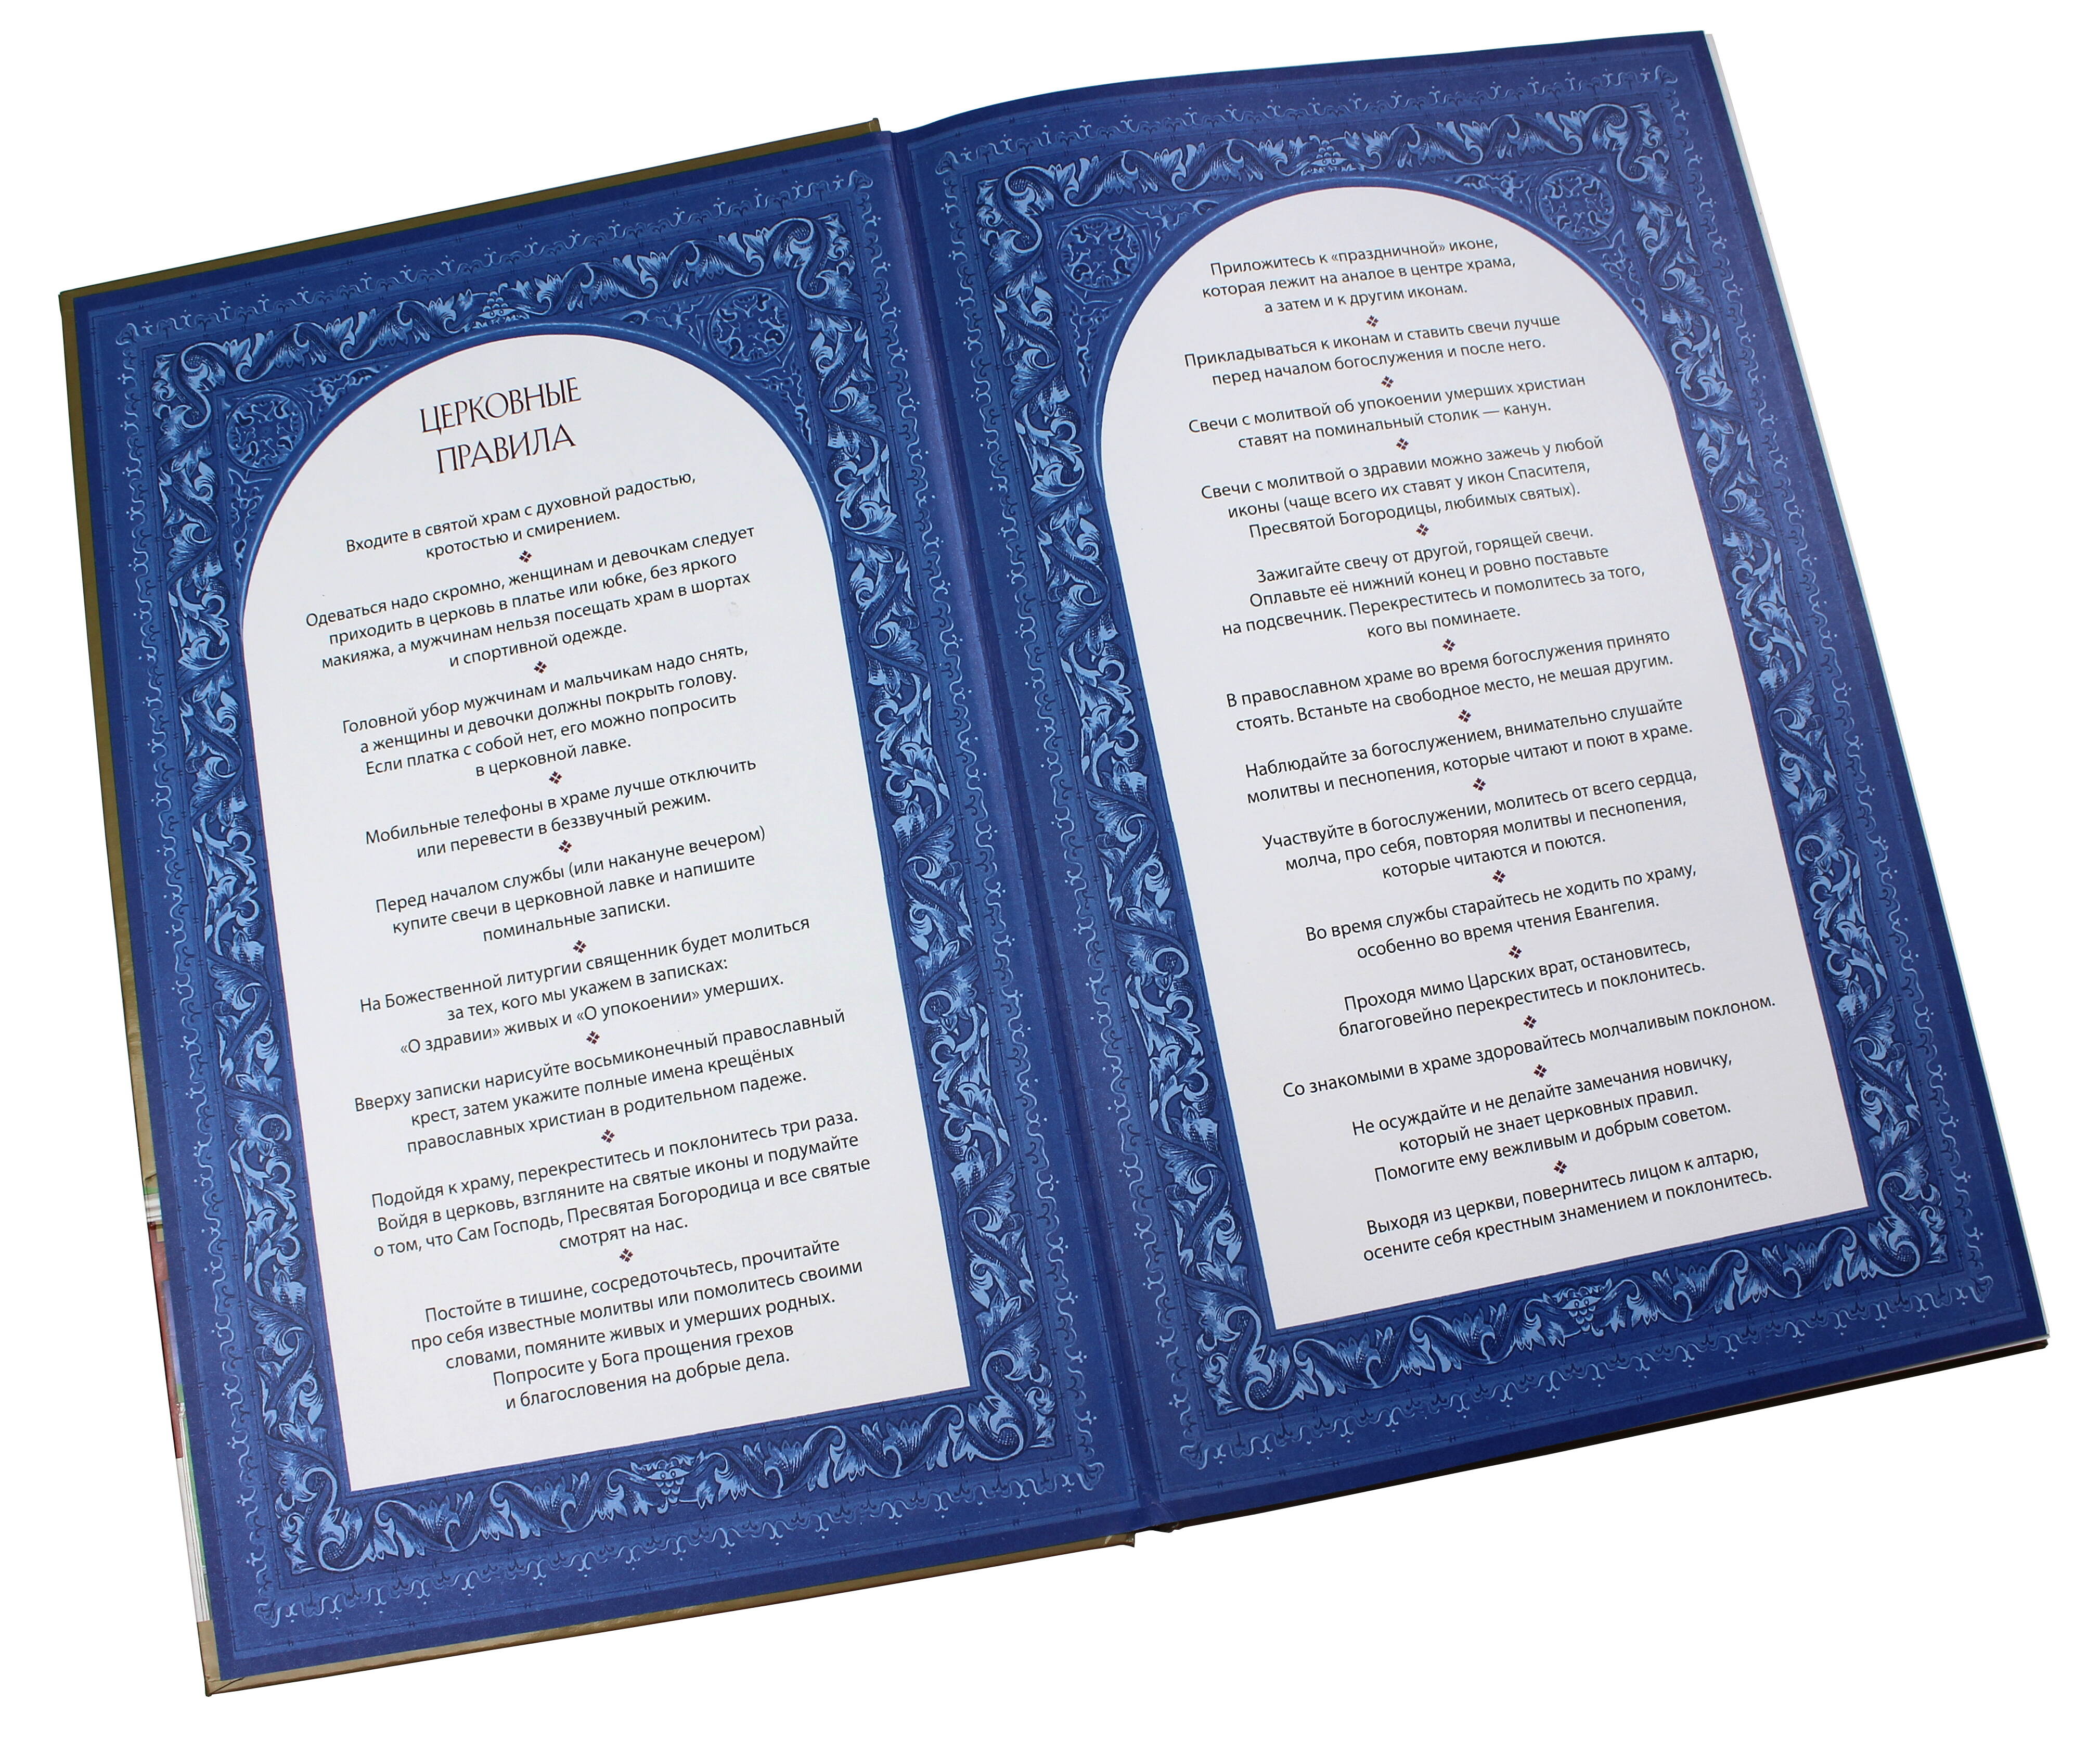 ЦЕРКОВНЫЕ
ПРАВИЛА
Входите в святой храм с духовной радостью,
кротостью и смирением.
Одеваться надо скромно, женщинам и девочкам следует
приходить в церковь в платье или юбке, без яркого
макияжа, а мужчинам нельзя посещать храм в шортах
и спортивной одежде.
Головной убор мужчинам и мальчикам надо снять,
а женщины и девочки должны покрыть голову.
Если платка с собой нет, его можно попросить
в церковной лавке.
Мобильные телефоны в храме лучше отключить
или перевести в беззвучный режим.
Перед началом службы (или накануне вечером)
купите свечи в церковной лавке и напишите
поминальные записки.
На Божественной литургии священник будет молиться
за тех, кого мы укажем в записках:
«О здравии» живых и «О упокоении» умерших.
Вверху записки нарисуйте восьмиконечный православный
крест, затем укажите полные имена крещёных
православных христиан в родительном падеже.
Подойдя к храму, перекреститесь и поклонитесь три раза.
Войдя в церковь, взгляните на святые иконы и подумайте
о том, что Сам Господь, Пресвятая Богородица и все святые
смотрят на нас.
Постойте в тишине, сосредоточьтесь, прочитайте
про себя известные молитвы или помолитесь своими
словами, помяните живых и умерших родных.
Попросите у Бога прощения грехов
и благословения на добрые дела.
Приложитесь к «праздничной» иконе,
которая лежит на аналое в центре храма,
а затем и к другим иконам.
Прикладываться к иконам и ставить свечи лучше
перед началом богослужения и после него.
Свечи с молитвой об упокоении умерших христиан
ставят на поминальный столик — канун.
Свечи с молитвой о здравии можно зажечь у любой
иконы (чаще всего их ставят у икон Спасителя,
Пресвятой Богородицы, любимых святых).
Зажигайте свечу от другой, горящей свечи.
Оплавьте её нижний конец и ровно поставьте
на подсвечник. Перекреститесь и помолитесь за того,
кого вы поминаете.
В православном храме во время богослужения принято
стоять. Встаньте на свободное место, не мешая другим.
Наблюдайте за богослужением, внимательно слушайте
молитвы и песнопения, которые читают и поют в храме.
Участвуйте в богослужении, молитесь от всего сердца,
молча, про себя, повторяя молитвы и песнопения,
которые читаются и поются.
Во время службы старайтесь не ходить по храму,
особенно во время чтения Евангелия.
Проходя мимо Царских врат, остановитесь,
благоговейно перекреститесь и поклонитесь.
Со знакомыми в храме здоровайтесь молчаливым поклоном.
Не осуждайте и не делайте замечания новичку,
который не знает церковных правил.
Помогите ему вежливым и добрым советом.
Выходя из церкви, повернитесь лицом к алтарю,
осените себя крестным знамением и поклонитесь.